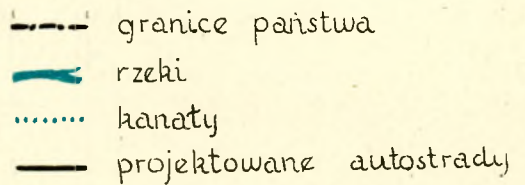 granice państwa
rzeki
kanały
projektowane autostrady